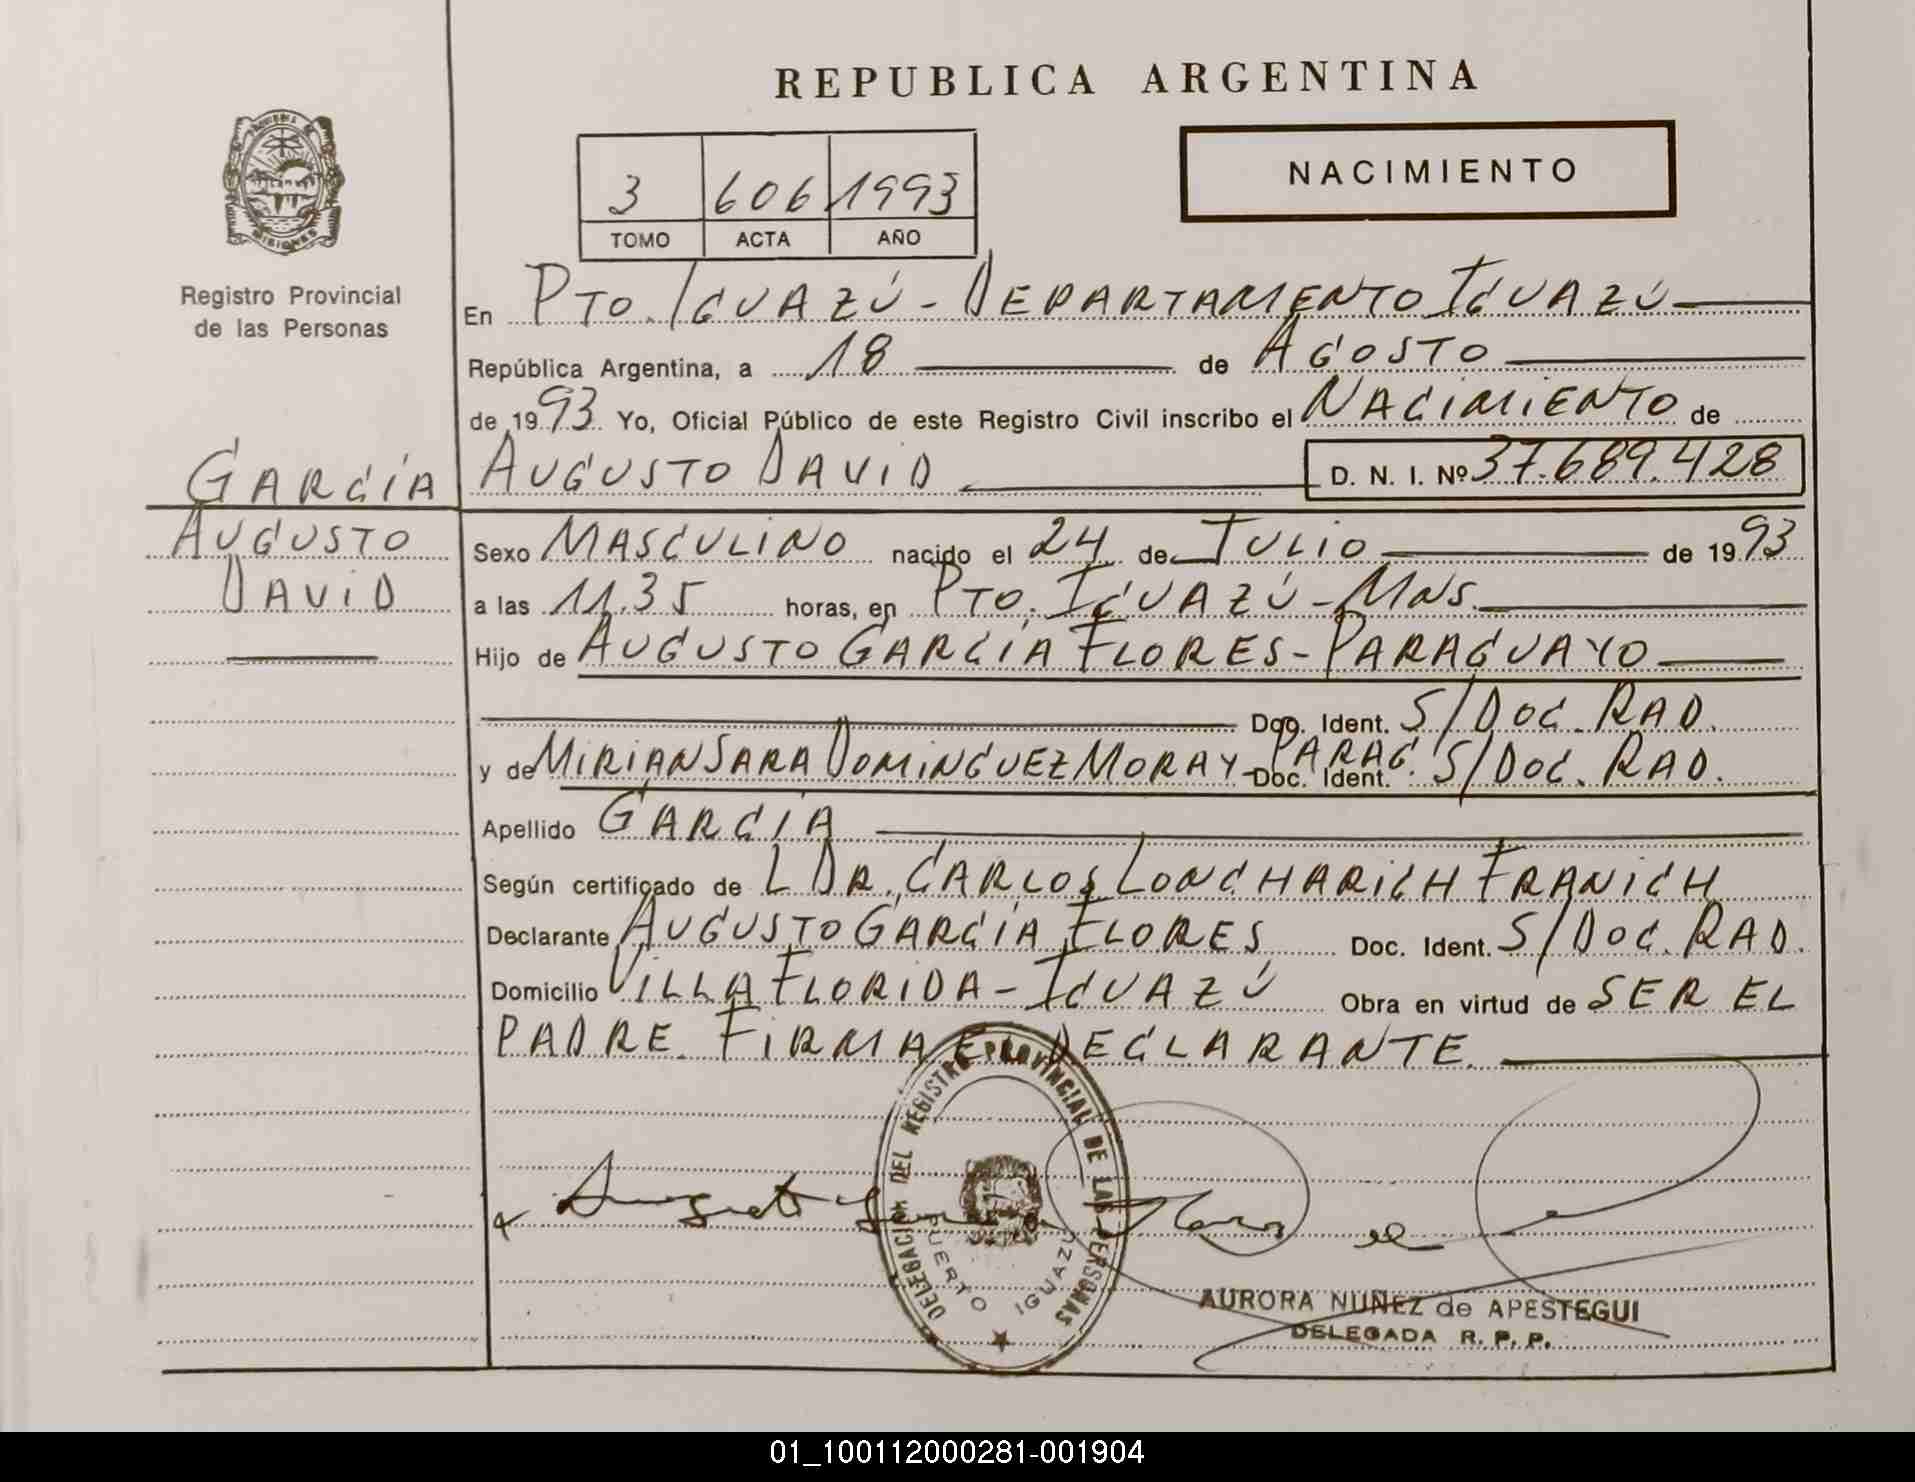 REPUBLICA ARGENTINA
MISIONES
Registro Provincial
de las Personas
3 606 1993
TOMO ACTA AÑO
NACIMIENTO
En PTO. IGUAZÚ - DEPARTAMENTO IGUAZÚ
República Argentina, a 18 de AGOSTO
de 1993 Yo, Oficial Público de este Registro Civil inscribo el NACIMIENTO de
GARCÍA AUGUSTO DAVID D. N. I. Nº 37.689.428
AUGUSTO
DAVID
Sexo MASCULINO nacido el 24 de JULIO de 1993
a las 11.35 horas, en PTO. IGUAZÚ - MNS.
Hijo de AUGUSTO GARCÍA FLORES - PARAGUAYO
Doc. Ident. S/DOC. RAD.
y de MIRIAN SARA DOMINGUEZ MORAY - PARAG. Doc. Ident. S/DOC. RAD.
Apellido GARCÍA
Según certificado de L DR. CARLOS LONCHARICH FRANICH
Declarante AUGUSTO GARCÍA FLORES Doc. Ident. S/DOC. RAD.
Domicilio VILLA FLORIDA - IGUAZÚ Obra en virtud de SER EL
PADRE. FIRMA EL DECLARANTE.
DELEGACION DEL REGISTRO PROVINCIAL DE LAS PERSONAS
PUERTO IGUAZU
AURORA NUÑEZ de APESTEGUI
DELEGADA R. P. P.
01_100112000281-001904